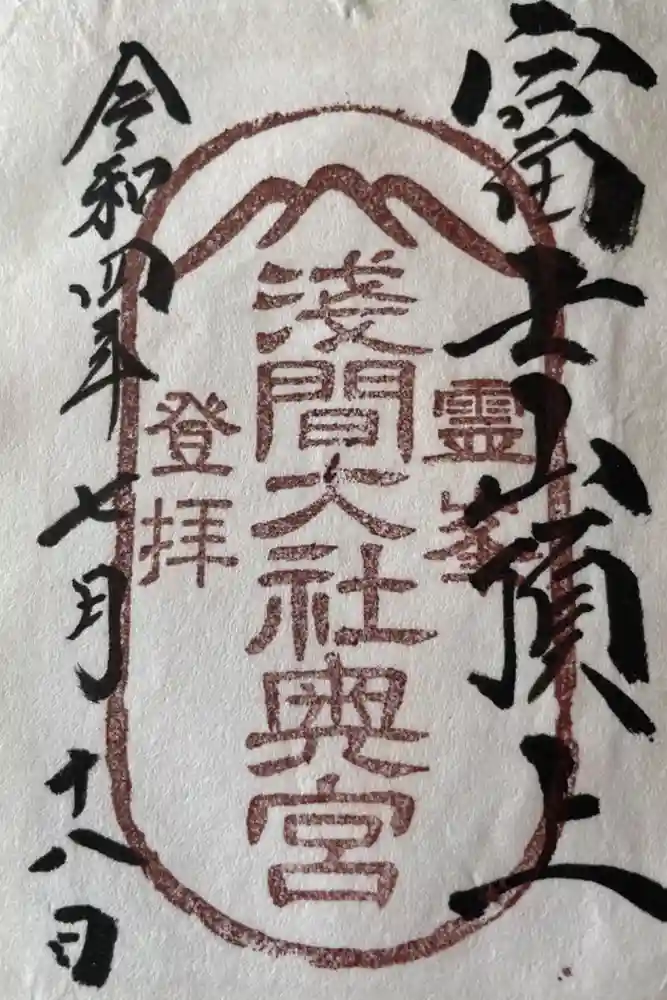 富士山頂上
霊峯
淺間大社奥宮
登拝
令和四年七月十八日